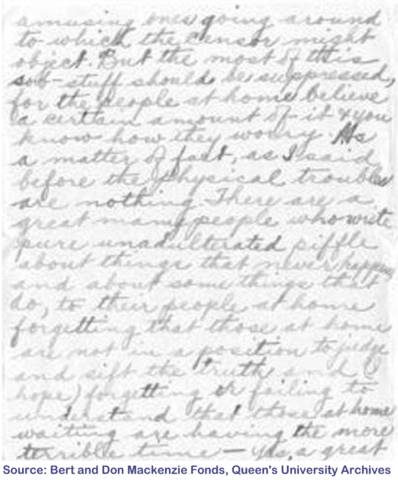 amusing ones going around
to which the censor might
object. But the most of this
sob-stuff should be suppressed,
for the people at home believe
a certain amount of it & you
know how they worry. As
a matter of fact, as I said
before the physical troubles
are nothing. There are a
great many people who write
pure unadulterated piffle
about things that never happen
and about some things that
do, to their people at home
forgetting that those at home
are not in a position to judge
and sift the truth, and (I
hope) forgetting or failing to
understand that those at home
waiting are having the more
terrible time — Yes, a great
Source: Bert and Don Mackenzie Fonds, Queen's University Archives